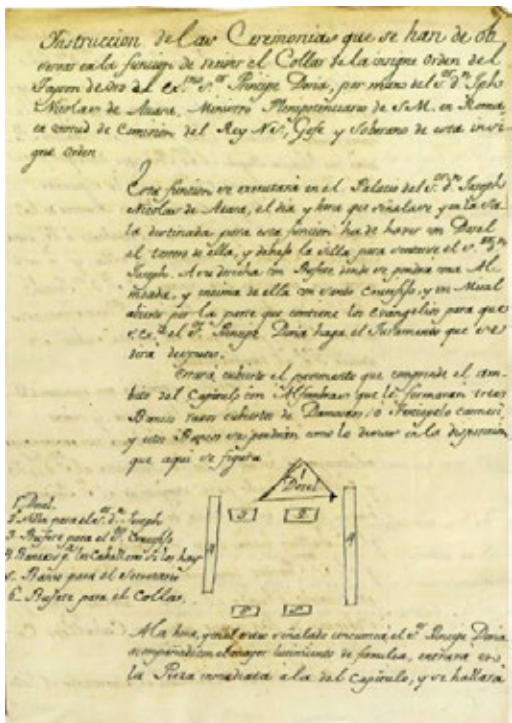 Instruccion de las Ceremonias que se han de ob
servar en la funcion de recivir el Collar de la insigne Orden del
Toyson de Oro el Ex.mo S.or Principe Doria, por mano del S.or D.n Jph
Nicolas de Azara, Ministro Plenipotenciario de S.M. en Roma
en virtud de Comision del Rey N. S.r, Gefe y Soberano de esta insi
gne orden
Esta funcion se executará en el Palacio del S.or D.n Joseph
Nicolas de Azara, el dia y hora que señalare y en la Sa
la destinada para esta funcion ha de haver un Dosel
el testero de ella, y debajo la silla para sentarse el S.or D.n
Joseph. A su derecha un Bufete donde se pondrá una Al
mohada, y encima de ella un santo Crucifijo, y un Misal
abierto por la parte que contiene los Evangelios para que
el S. Principe Doria haga el Juramento que se
dirá despues.
Estará cubierto el pavimento que comprende el am
bito del Capitulo con Alfombras que le formarán tres
Bancos rasos cubiertos de Damasco, ó Terciopelo carmesi
y estos Bancos se pondrán como lo demas en la disposicion
que aqui se figura
1
Dosel
3 2
4 4
1. Dosel.
2. Silla para el S.or D.n Joseph
3. Bufete para el S.to Crucifijo
4. Bancos p.a los Caballeros si los hay
5. Banco para el Secretario
6. Bufete para el Collar.
A la hora, y en el señalado concurrirá el S.or Principe Doria
acompañado con el mayor lucimiento de familia, entrará en
la Pieza inmediata a la del Capitulo, y se hallará